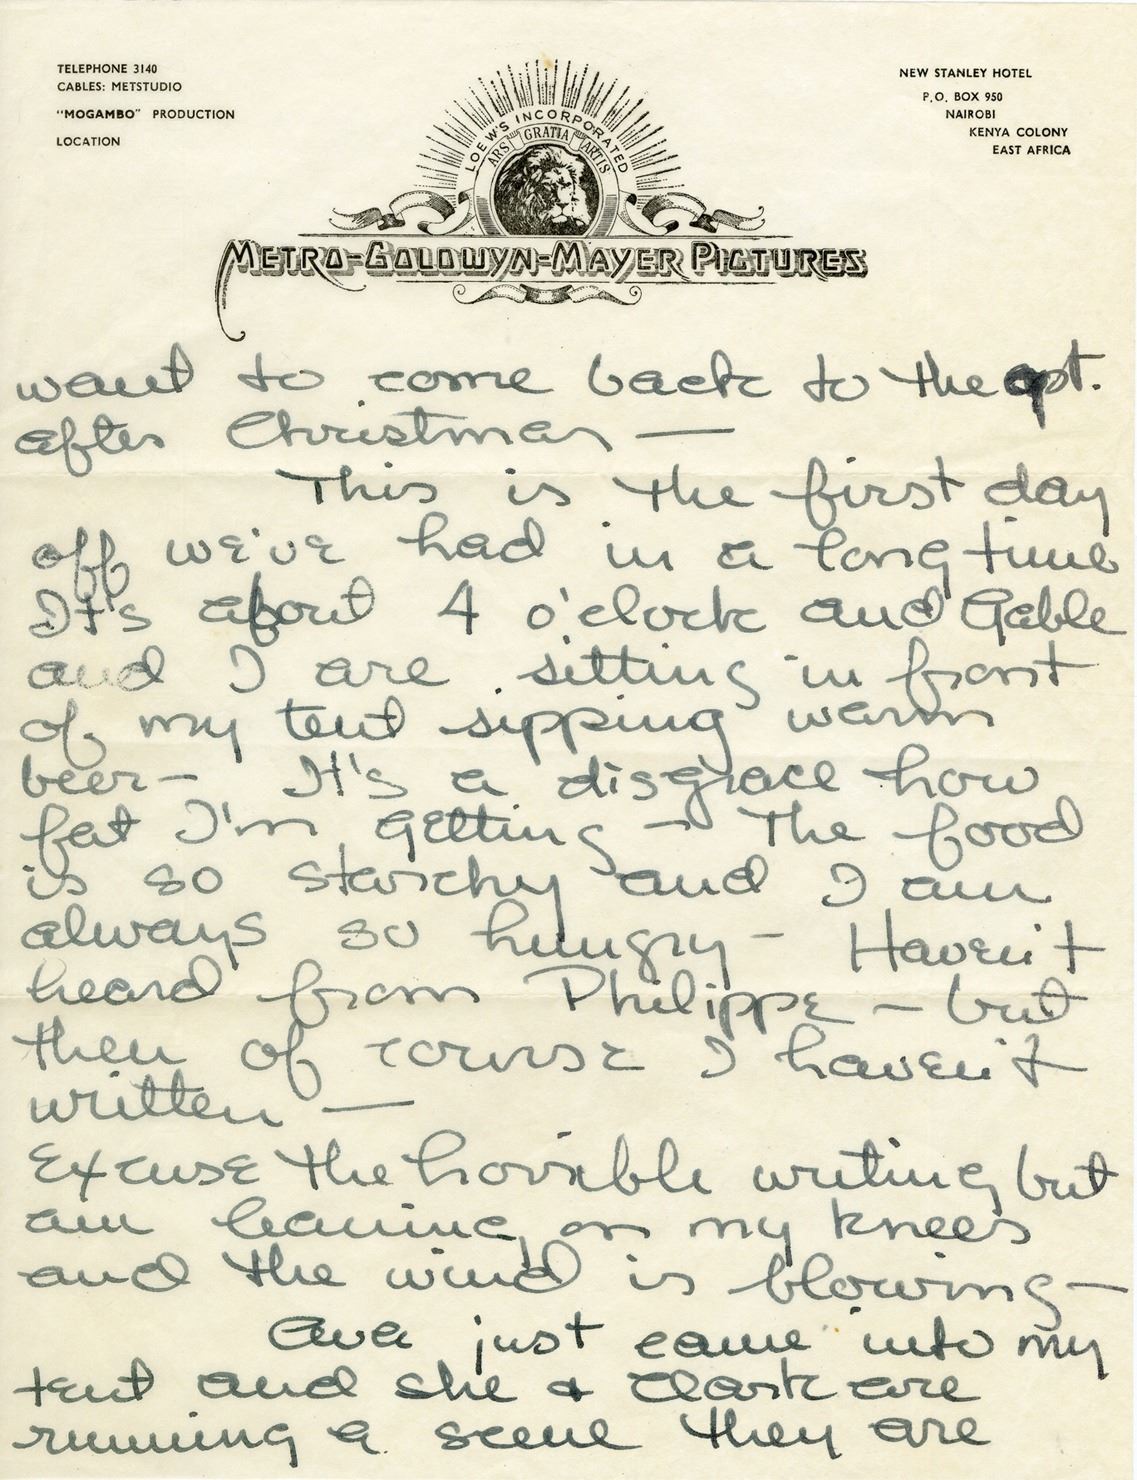 TELEPHONE 3140
CABLES: METSTUDIO
"MOGAMBO" PRODUCTION
LOCATION
NEW STANLEY HOTEL
P.O. BOX 950
NAIROBI
KENYA COLONY
EAST AFRICA
LOEW'S INCORPORATED
ARS GRATIA ARTIS
METRO-GOLDWYN-MAYER PICTURES
want to come back to the apt.
after Christmas —
This is the first day
off we've had in a long time
It's about 4 o'clock and Gable
and I are sitting in front
of my tent sipping warm
beer — It's a disgrace how
fat I'm getting — The food
is so starchy and I am
always so hungry — Haven't
heard from Philippe — but
then of course I haven't
written —
Excuse the horrible writing but
am leaning on my knees
and the wind is blowing —
Ava just came into my
tent and she & Clark are
running a scene they are